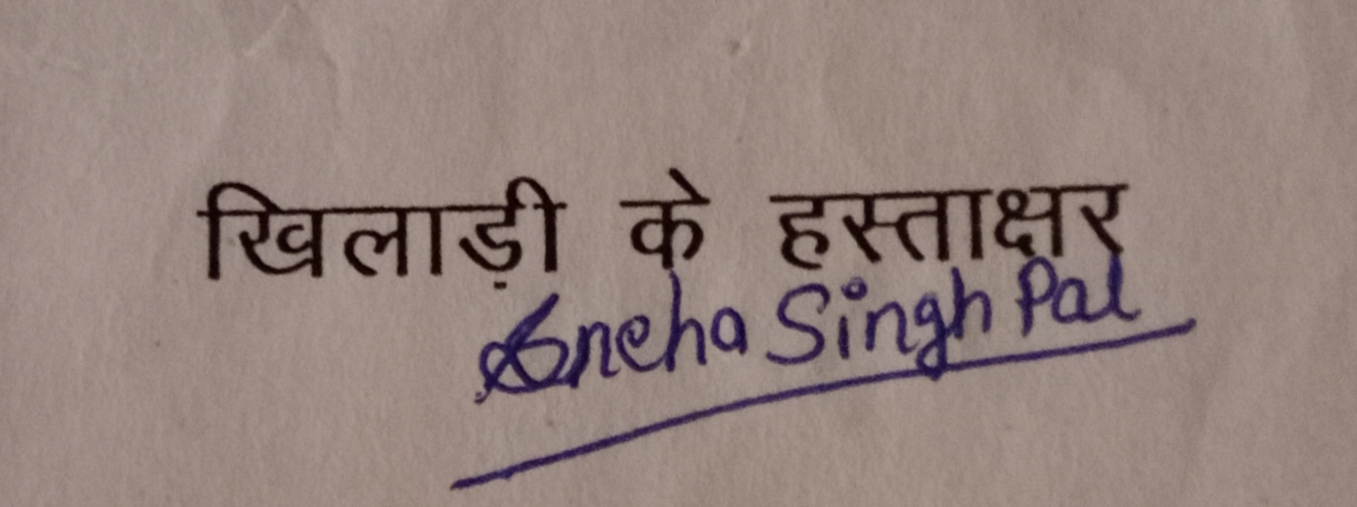 खिलाड़ी के हस्ताक्षर
Sneha Singh Pal